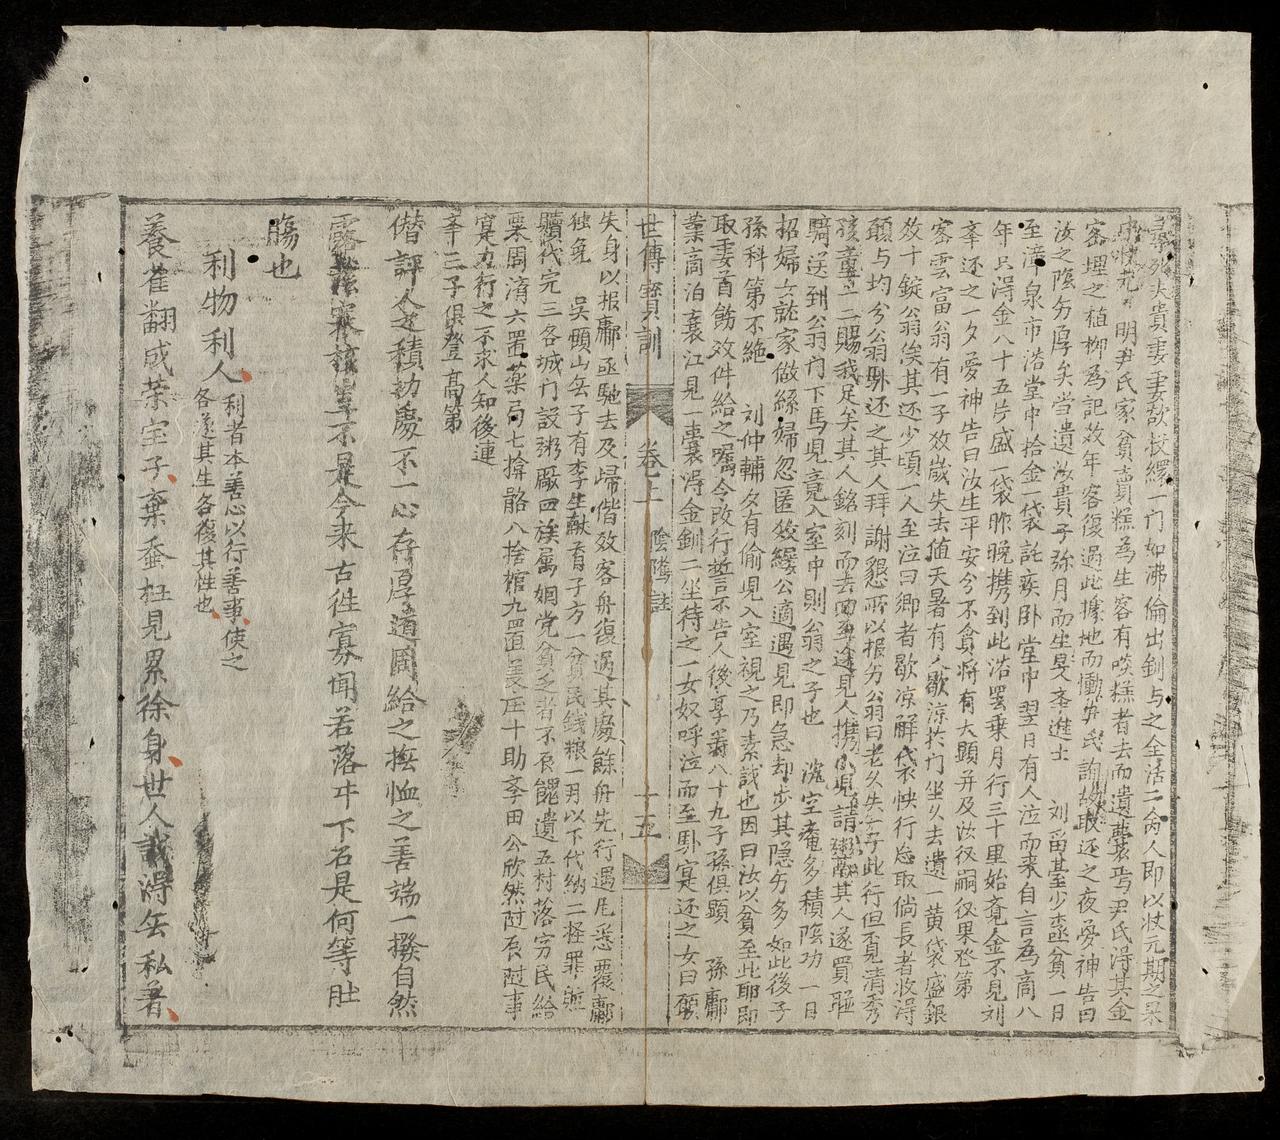 中狀元 明尹氏家貧賣糕為生客有啖糕者去而遺囊焉尹氏得其金
密埋之植柳為記数年客復過此據地而慟尹氏詢故取还之夜夢神告曰
汝之陰功厚矣当遺汝貴子弥月而生旻李進士 刘留甚少孟貧一日
至漳泉市浩堂中拾金一袋託疾卧堂中翌日有人泣而来自言為商八
年只得金八十五片盛一袋昨晚携到此浩罢乗月行三十里始覚金不見刘
牽还之一夕夢神告曰汝生平安分不貪将有大顯并及汝後嗣後果登第
密雲富翁有一子效歲失去値天暑有人歇涼於门坐久去遺一黄袋盛銀
数十錠翁俟其还少頃一人至泣曰郷者歇涼解袋怏行忘取倘長者收得
願与均分翁即还之其人拜謝懇所以報另翁曰老夫失子此行但覓清秀
孩童一二賜我足矣其人銘刻而去回至途見人携小児請鬻其人遂買聨
騎送到翁门下馬児竟入室中則翁之子也 沈空庵多積陰功一日
招婦女就家做絲婦忽匿絞縷公適遇見即急却步其隠另多如此後子
孫科第不絶 刘仲輔夕有偷児入室視之乃素識也因曰汝以貧至此耶即
取妻首飾效件給之嘱令改行誓不告人後享壽八十九子孫俱顯 孫鄘
業商泊襄江見一囊得金釧二坐待之一女奴呼泣而至鄘寔还之女曰願
世傳寳訓 卷上 陰隲註 十五
失身以报鄘亟馳去及歸偕效客舟復过其處餘舟先行遇风悉覆鄘
独免 吴碩山无子有李生献育子方一貧民钱粮一两以下代納二輕罪无
贖代完三各城门設粥廠四族属姻党貧乏者不吝餽遺五村落穷民給
栗周濟六置薬局七揜骼八捨棺九置義庄十助李田公欣然过吝过事
寔力行之不求人知後連
辛三子俱登高第
僭評人之積功慶不一心存厚道周給之撫恤之善端一撥自然
今来古徃寡闻若落井下石是何等肚
膓也
利物利人利者本善心以行善事使之
各遂其生各復其性也
養雀翻成荣宝子棄蚕枉見累徐身世人識得无私者